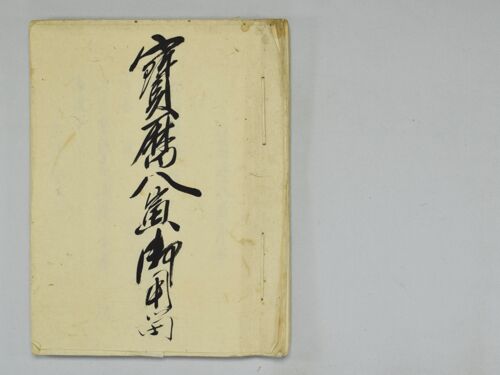 寳暦八寅御用留